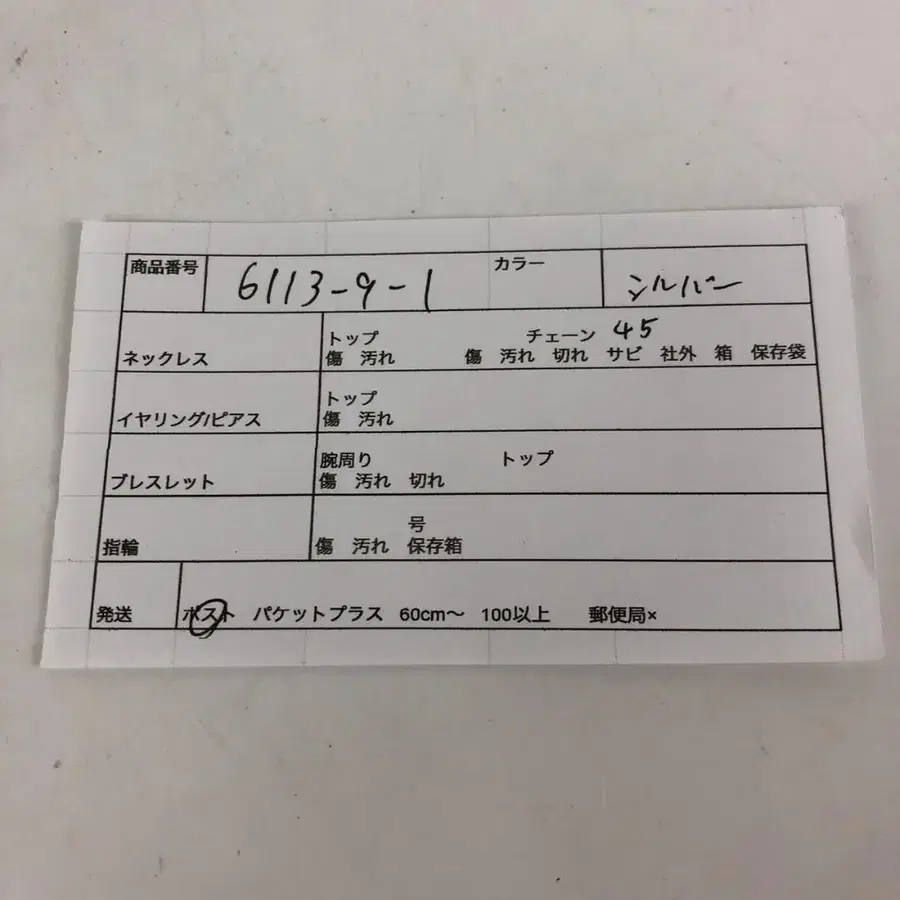 商品番号 6113-9-1 カラー シルバー
ネックレス トップ チェーン 45
傷 汚れ 傷 汚れ 切れ サビ 社外 箱 保存袋
イヤリング/ピアス トップ
傷 汚れ
ブレスレット 腕周り トップ
傷 汚れ 切れ
指輪 号
傷 汚れ 保存箱
発送 ポスト パケットプラス 60cm〜 100以上 郵便局×